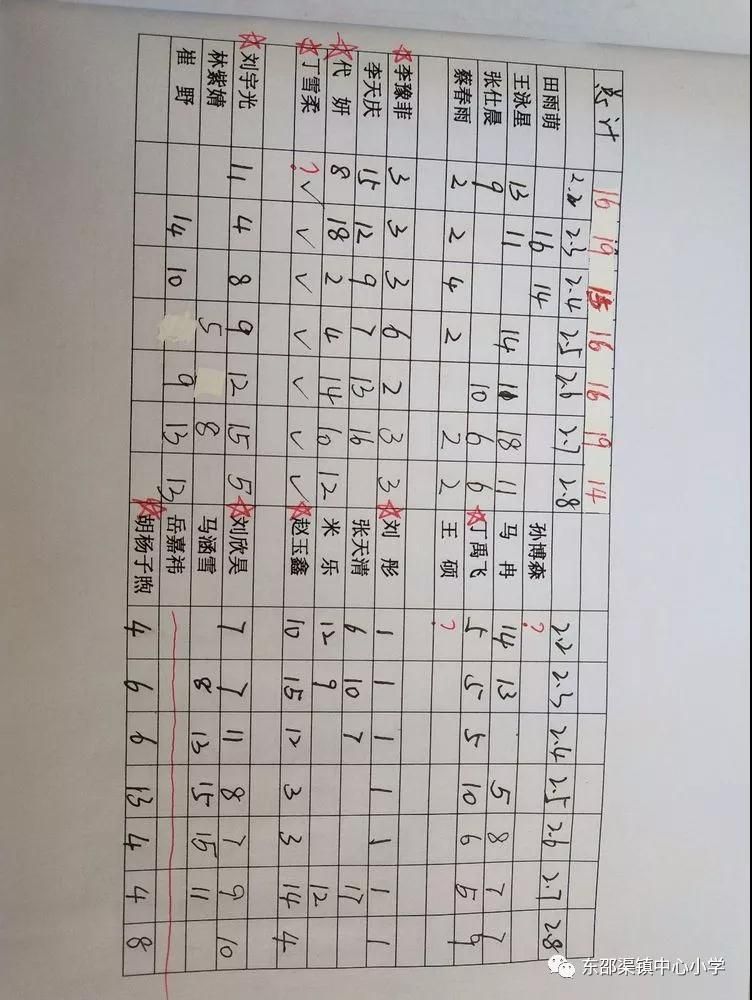 总计 16 19 15 16 16 19 14
2.2 2.3 2.4 2.5 2.6 2.7 2.8 2.2 2.3 2.4 2.5 2.6 2.7 2.8
田雨萌 16 14 孙博森 ?
王泳星 13 11 14 18 11 马冉 14 13 5 8 7 7
张仕晨 9 10 6 6 ☆丁禹飞 5 5 5 10 6 5
蔡春雨 2 2 4 2 2 2 王硕 ?
☆李豫菲 3 3 3 6 2 3 3 ☆刘彤 1 1 1 1 1 1 1
李天庆 15 12 9 7 13 16 张天清 6 10 7 17
☆代妍 8 18 2 4 14 10 12 米乐 12 9 12
☆丁雪柔 ?✓ ✓ ✓ ✓ ✓ ✓ ✓ ☆赵玉鑫 10 15 12 3 3 14 4
☆刘宇光 11 4 8 9 12 15 5 ☆刘欣昊 7 7 11 8 7 9 10
林紫婧 5 8 马涵雪 8 13 15 15 11
崔野 14 10 9 13 13 岳嘉祎
☆胡杨子煦 4 6 6 13 4 4 8
东邵渠镇中心小学